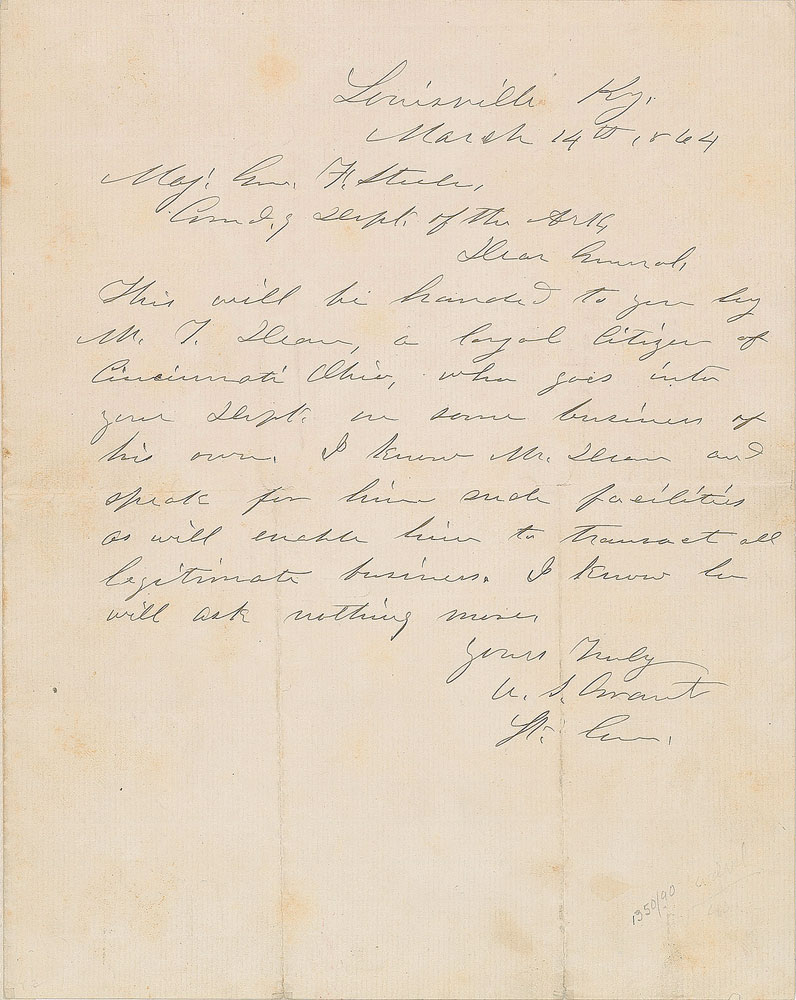 Louisville Ky.
March 14th 1864
Maj. Gen. F. Steele,
Comd.g Dept. of the Ark,
Dear General,
This will be handed to you by
Mr. T. Dean, a loyal citizen of
Cincinnati Ohio, who goes into
your Dept. on some business of
his own. I know Mr. Dean and
speak for him such facilities
as will enable him to transact all
legitimate business. I know he
will ask nothing more.
Yours Truly
U. S. Grant
Lt. Gen.
1350/90